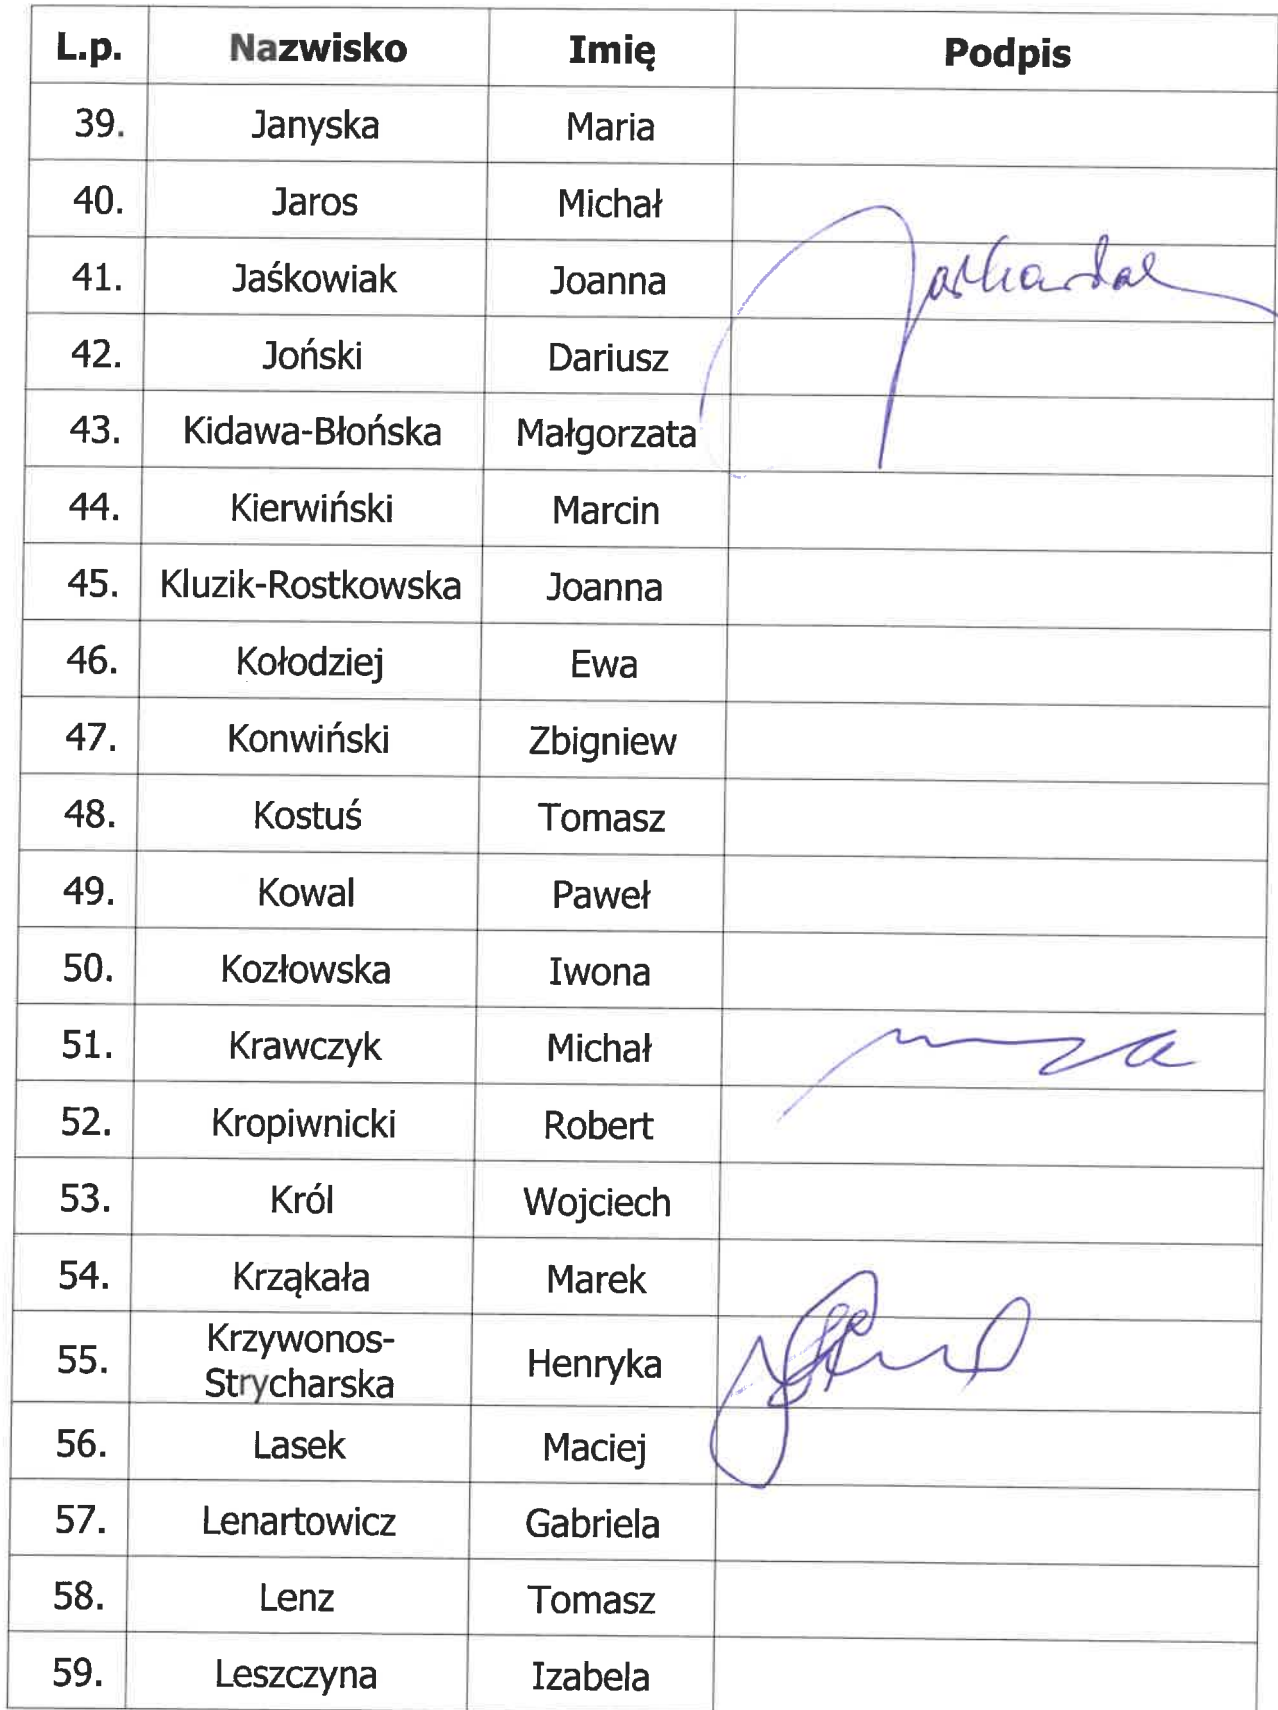 L.p. Nazwisko Imię Podpis
39. Janyska Maria
40. Jaros Michał
41. Jaśkowiak Joanna
42. Joński Dariusz
43. Kidawa-Błońska Małgorzata
44. Kierwiński Marcin
45. Kluzik-Rostkowska Joanna
46. Kołodziej Ewa
47. Konwiński Zbigniew
48. Kostuś Tomasz
49. Kowal Paweł
50. Kozłowska Iwona
51. Krawczyk Michał
52. Kropiwnicki Robert
53. Król Wojciech
54. Krząkała Marek
55. Krzywonos-
Strycharska Henryka
56. Lasek Maciej
57. Lenartowicz Gabriela
58. Lenz Tomasz
59. Leszczyna Izabela